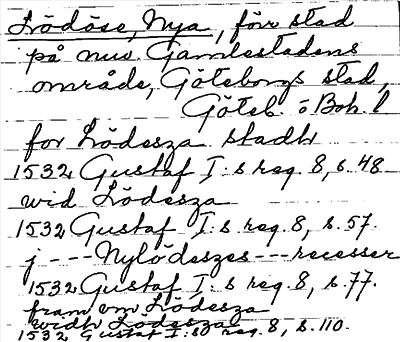 Lödöse, Nya, förr stad
på nuv. Gamlestadens
område, Göteborgs stad,
Göteb. o Boh. l
for Lödesza stadh
1532 Gustaf I:s reg. 8, s. 48
wid Lödesza
1532 Gustaf I:s reg. 8, s. 57.
j --- Nylödeszes --- recesser
1532 Gustaf I:s reg. 8, s. 77.
fram om Lödesza
widh Lodesza
1532 Gustaf I:s reg. 8, s. 110.